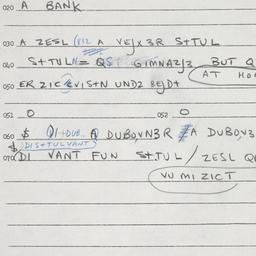 020 A BANK
030 A ZESL VEJX3R S++UL
040 S++ULN= QS GIMNAZJ3 BUT Q
AT HO
050 ER ZIC EVIS+N UND2 BEJD+
051 O 052 O
060 $ A DUBO,VN3R A DUBO,V3
DIS++ULVANT
070 DI VANT FUN S++UL / ZESL Q
VU MI ZICT